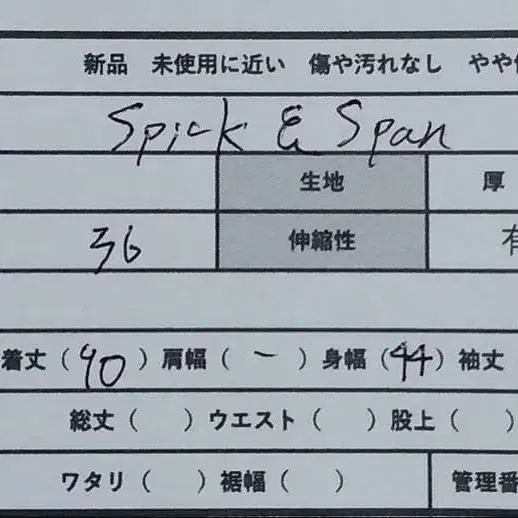 新品 未使用に近い 傷や汚れなし やや
Spick & Span
生地 厚
36 伸縮性 有
着丈（90）肩幅（ー）身幅（44）袖丈
総丈（ ）ウエスト（ ）股上（ ）
ワタリ（ ）裾幅（ ） 管理番